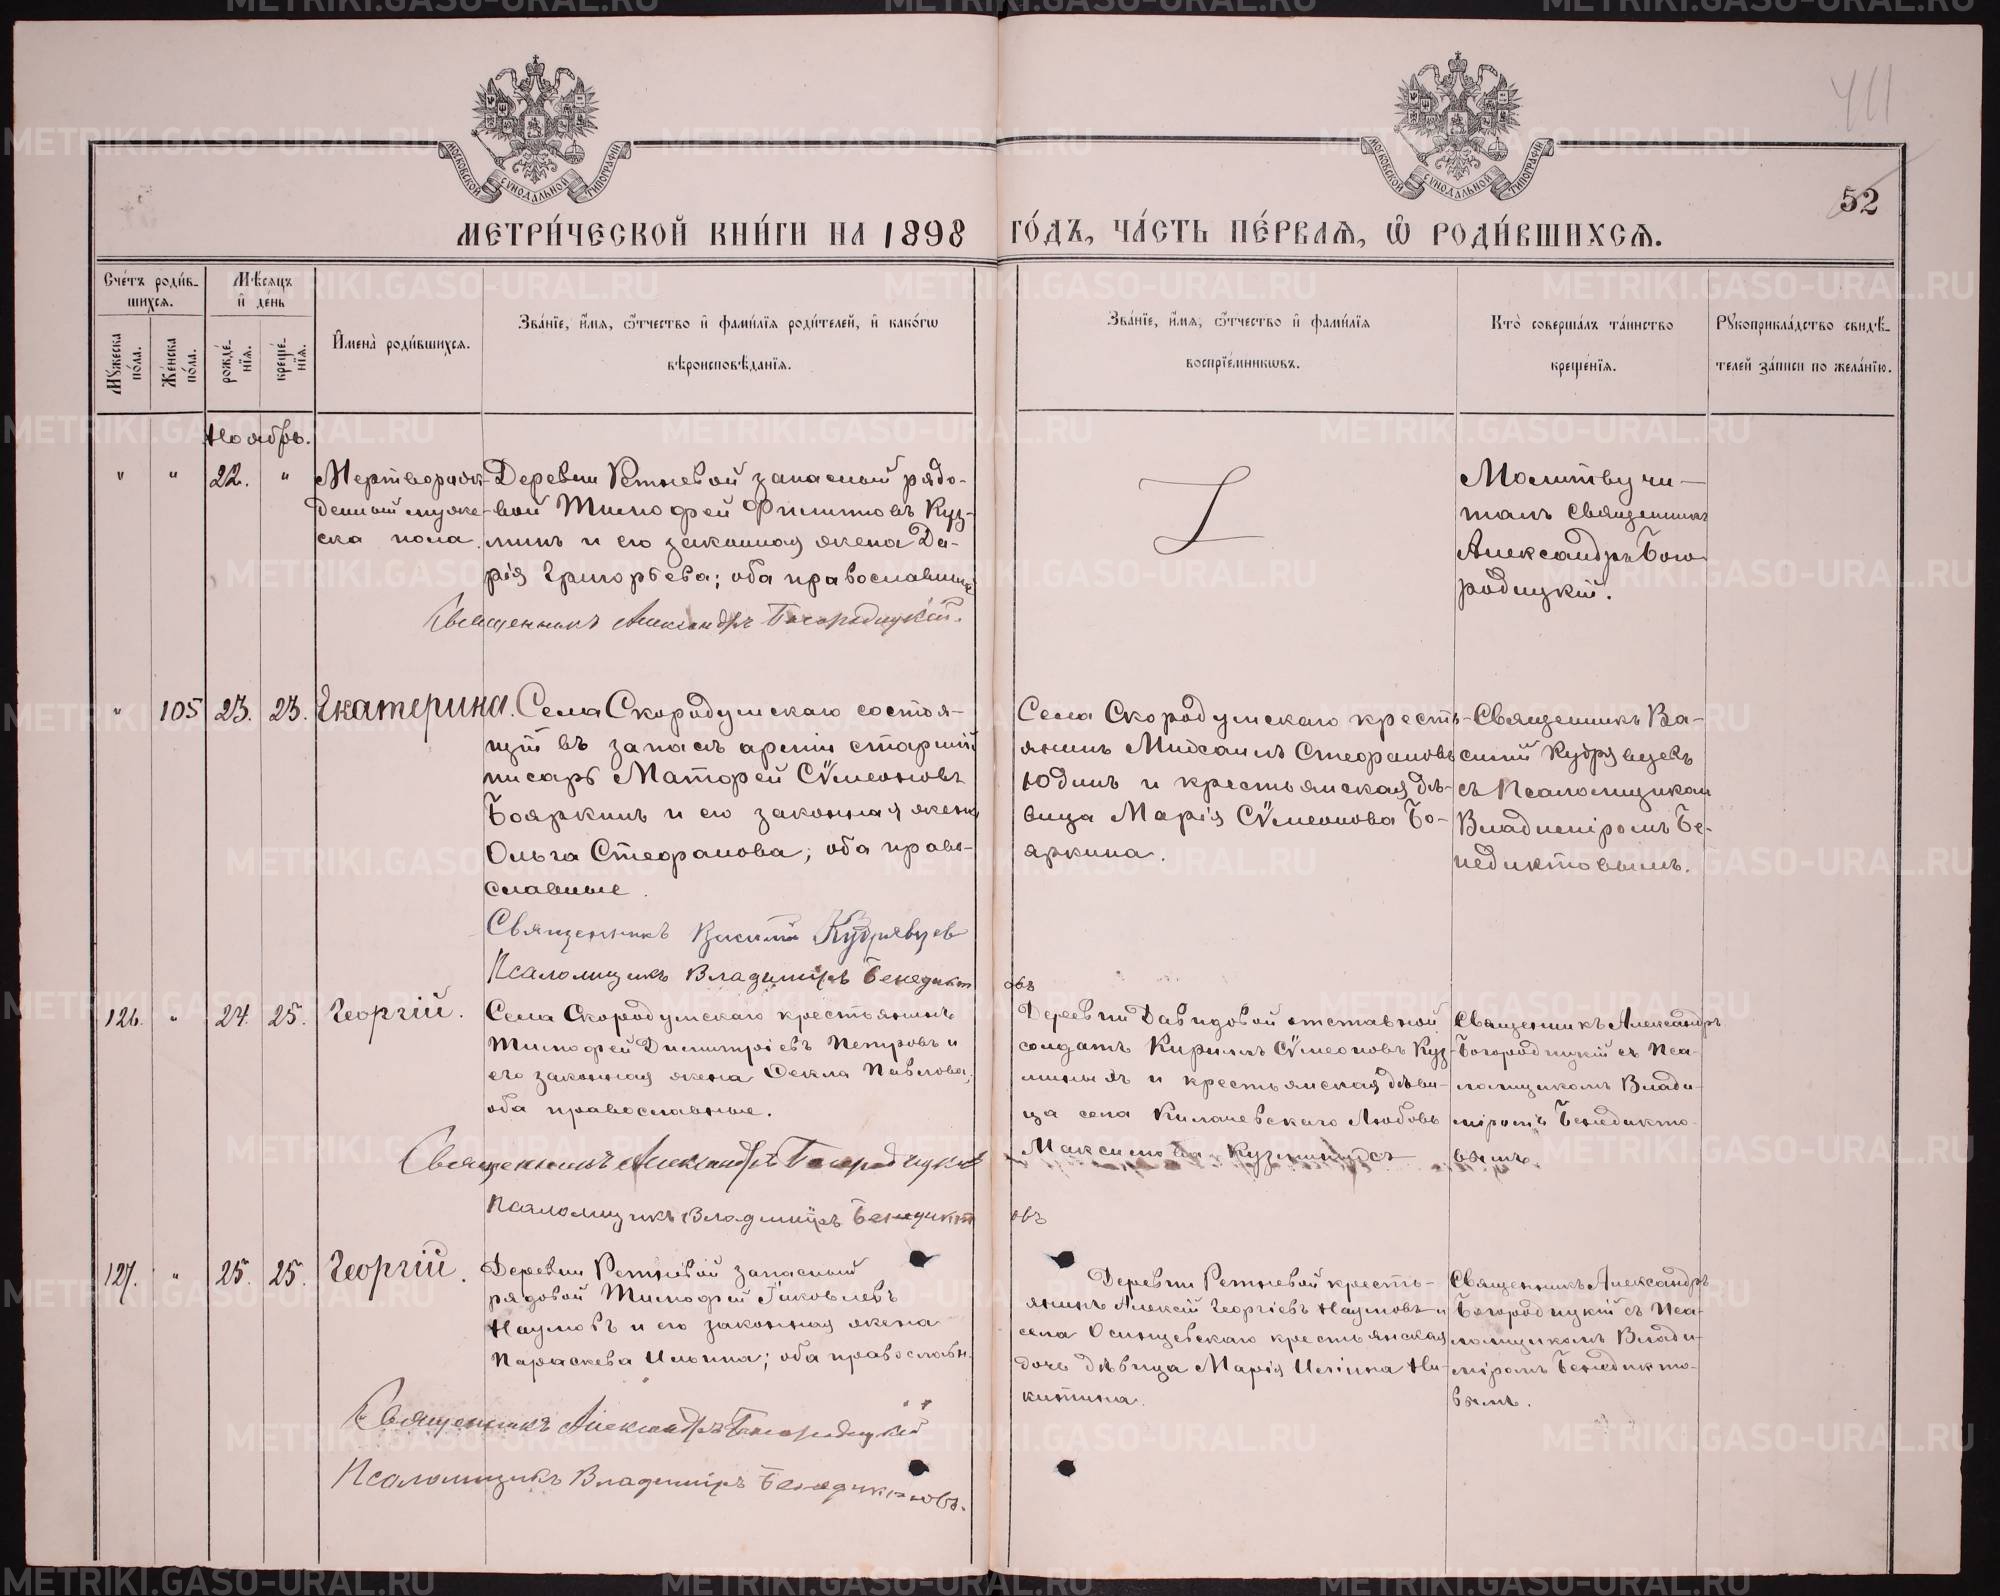 411
52
МОСКОВСКОЙ СѴНОДАЛЬНОЙ ТИПОГРАФІИ
МОСКОВСКОЙ СѴНОДАЛЬНОЙ ТИПОГРАФІИ
МЕТРИ́ЧЕСКОЙ КНИ́ГИ НА 1898 ГО́ДЪ, ЧА́СТЬ ПЕ́РВАѦ, Ѽ РОДИ́ВШИХСѦ.
Сче́тъ роди́в-
шихсѧ.
Мѣ́сѧцъ
и҆ де́нь
Мꙋ́жеска по́ла.
Же́нска по́ла.
рожде́нїѧ.
креще́нїѧ.
И҆мена̀ роди́вшихсѧ.
Зва́нїе, и҆́мѧ, ѻ҆́тчество и҆ фами́лїѧ роди́телей, и҆ како́гѡ
вѣроисповѣ́данїѧ.
Зва́нїе, и҆́мѧ, ѻ҆́тчество и҆ фами́лїѧ
воспрїе́мникѡвъ.
Кто̀ соверша́лъ та́инство
креще́нїѧ.
Рꙋкоприкла́дство свидѣ́-
телей за́писи по жела́нїю.
Ноябрь.
" " 22. "
Мерткорож-
денный муже-
ска пола.
Деревни Ретневой запасный рядо-
вой Тимофей Филиповъ Куз-
минъ и его законная жена Да-
рія Григорьева; оба православные
Священникъ Александръ Богородицкій.
Молитву чи-
талъ священникъ
Александръ Бого
родицкій.
" 105 23. 23. Екатерина.
Села Скородумскаго состоя-
щій въ запасѣ арміи старшій
писарь Матфей Сѵмеоновъ
Бояркинъ и его законная жена
Ольга Стефанова; оба право-
славные.
Священникъ Василій Кудрявцев
Псаломщикъ Владиміръ Бенедикт
овъ
Села Скородумскаго кресть-
янинъ Михаилъ Стефановъ
Юдинъ и крестьянская дѣ-
вица Марія Сѵмеонова Бо-
яркина.
Священникъ Ва-
силій Кудрявцевъ
съ Псаломщикомъ
Владиміромъ Бе-
недиктовымъ.
126. " 24. 25. Георгій.
Села Скородумскаго крестьянинъ
Тимофей Димитріевъ Петровъ и
его законная жена Ѳекла Павлова;
оба православные.
Священникъ Александръ Богородицкій
Псаломщикъ Владиміръ Бенедикт
овъ
Деревни Давидовой отставной
солдатъ Кириллъ Сѵмеоновъ Куз-
миныхъ и крестьянская дѣви-
ца села Килачевскаго Любовь
Максимова Кузминыхъ
Священникъ Александръ
Богородицкій съ Пса-
ломщикомъ Влади-
міромъ Бенедикто-
вымъ.
127. " 25. 25. Георгій.
Деревни Ретневой запасный
рядовой Тимофей Іаковлевъ
Наумовъ и его законная жена
Параскева Ильина; оба православн.
Священникъ Александръ Богородицкій
Псаломщикъ Владиміръ Бенедиктовъ.
Деревни Ретневой кресть-
янинъ Алексій Георгіевъ Наумовъ и
села Осинцевскаго крестьянская
дочь дѣвица Марія Иліина Ни-
китина.
Священникъ Александръ
Богородицкій съ Пса-
ломщикомъ Влади-
міромъ Бенедикто-
вымъ.
METRIKI.GASO-URAL.RU